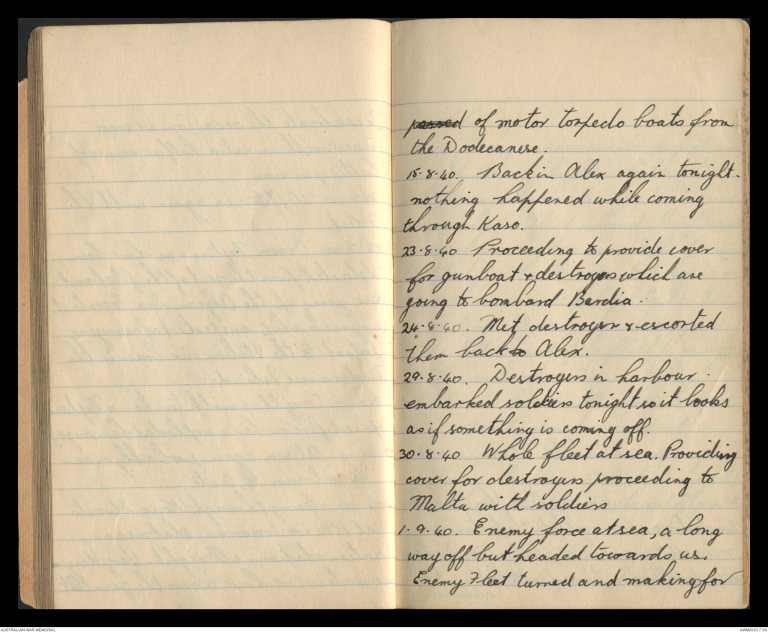 passed of motor torpedo boats from
the Dodecanese.
18.8.40. Back in Alex again tonight.
nothing happened while coming
through Kaso.
23.8.40 Proceeding to provide cover
for gunboat & destroyers which are
going to bombard Bardia.
24.8.40. Met destroyer & escorted
them back to Alex.
29.8.40. Destroyers in harbour
embarked soldiers tonight so it looks
as if something is coming off.
30.8.40 Whole fleet at sea. Providing
cover for destroyers proceeding to
Malta with soldiers
1.9.40. Enemy force at sea, a long
way off but headed towards us.
Enemy Fleet turned and making for
AUSTRALIAN WAR MEMORIAL